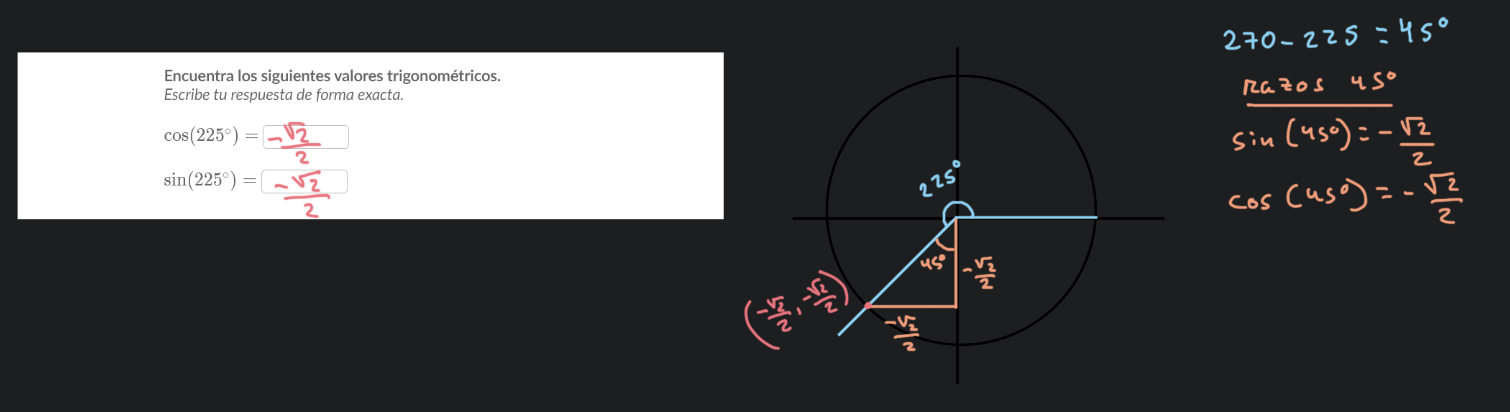 Encuentra los siguientes valores trigonométricos.
Escribe tu respuesta de forma exacta.
cos(225°) = -√2/2
sin(225°) = -√2/2
225°
45°
-√2/2
-√2/2
(-√2/2, -√2/2)
270 - 225 = 45°
Razos 45°
sin (45°) = -√2/2
cos (45°) = -√2/2